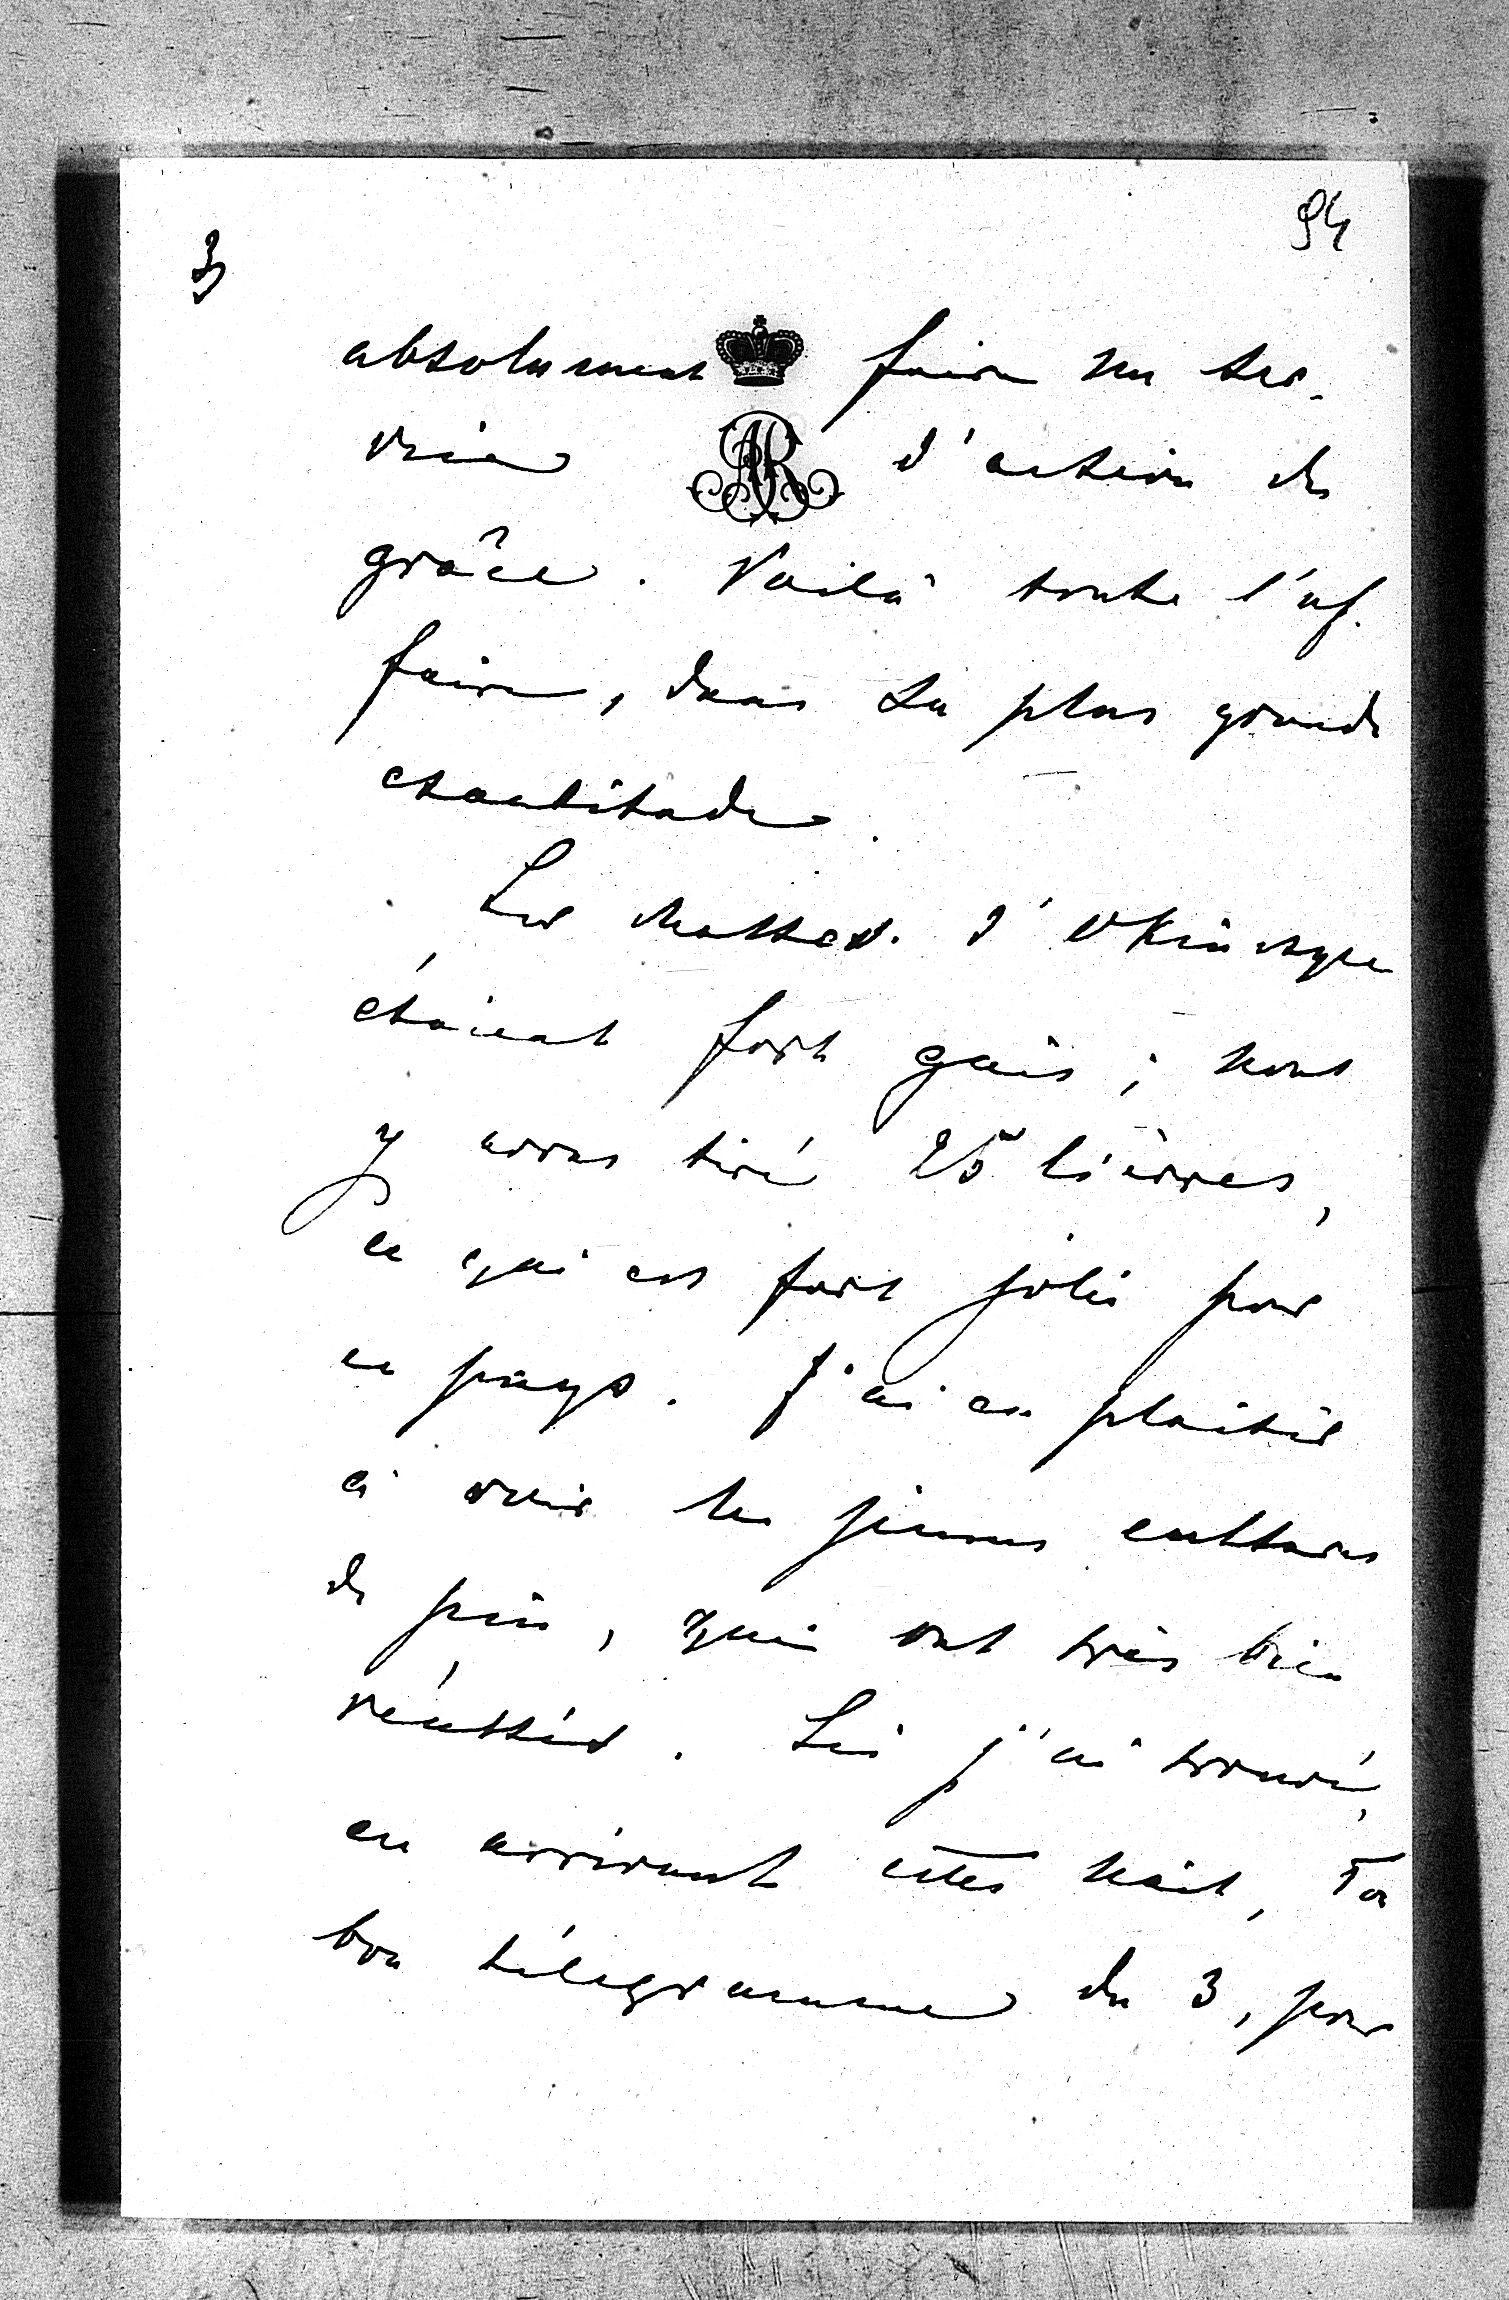 94
3
absolument faire un ser-
vice d'action de
grâce. Voilà toute l'af-
faire, dans sa plus grande
exactitude.
Les chasses d'
étaient fort gais; nous
y avons tiré 25 lièvres,
ce qui est fort joli pour
ce pays. J'ai eu plaisir
à voir les jeunes cultures
de pin, qui ont très bien
réussies. Ici j'ai trouvé,
en arrivant cette nuit, Ton
bon télegramme du 3, pour